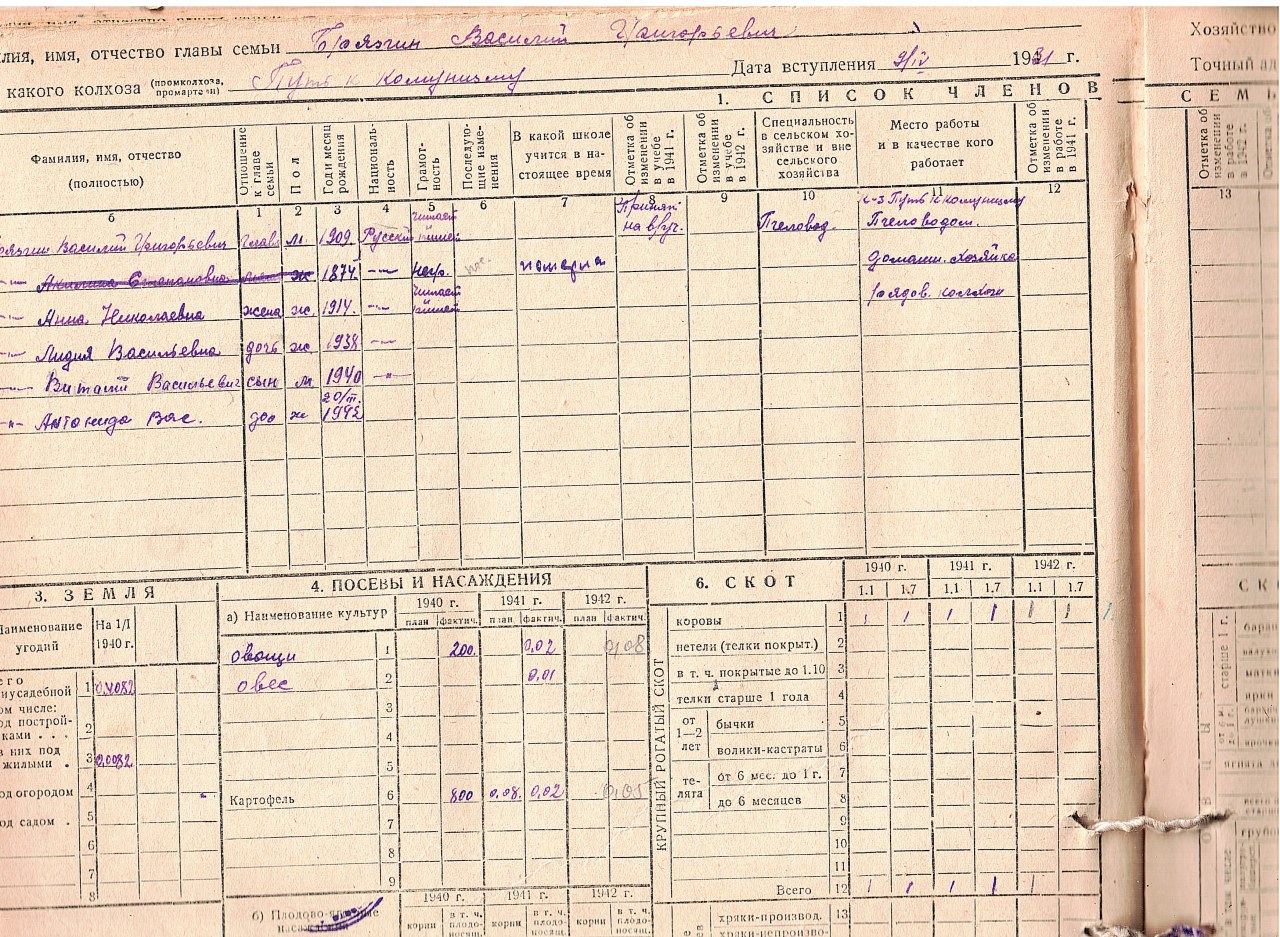 лия, имя, отчество главы семьи Брязгин Василий Григорьевич
какого колхоза (промколхоза, промартели) Путь к комунизму Дата вступления 9/IV 1931 г.
1. СПИСОК ЧЛЕНОВ
Фамилия, имя, отчество (полностью) Отношение к главе семьи Пол Год и месяц рождения Националь-ность Грамот-ность Последую-щие изме-нения В какой школе учится в на-стоящее время Отметка об изменении в учебе в 1941 г. Отметка об изменении в учебе в 1942 г. Специальность в сельском хо-зяйстве и вне сельского хозяйства Место работы и в качестве кого работает Отметка об изменении в работе в 1941 г.
б 1 2 3 4 5 6 7 8 9 10 11 12
Василий Григорьевич глав м. 1909 Русский читает пишет на вруч. Пчеловод. к-з Путь к комунизму Пчеловодом.
—"— Степановна ж 1874 —"— негр. померла домашн. хозяйка
—"— Анна Николаевна жена ж. 1914. —"— читает пишет рядов. колхоз
—"— Лидия Васильевна дочь ж. 1938 —"—
—"— Виталий Васильевич сын м 1940 —"—
-"- Антонида Вас. доч ж 1942
3. ЗЕМЛЯ
Наименование угодий На 1/I 1940 г.
его
иусадебной 1
ом числе:
од построй-
ками . . . 2
в них под
жилыми . 3 0,0082
од огородом 4
од садом . 5
6
7
8
4. ПОСЕВЫ И НАСАЖДЕНИЯ
а) Наименование культур 1940 г. 1941 г. 1942 г.
план фактич. план фактич. план фактич.
овощи 1 200. 0,02 0,08
овес 2 0,01
3
4
5
Картофель 6 800 0,08. 0,02 0,05
7
8
9
1940 г. 1941 г. 1942 г.
б) Плодово-ягодные насаждения корни в т. ч. плодо-носящ. корни в т. ч. плодо-носящ. корни в т. ч. плодо-носящ.
6. СКОТ 1940 г. 1941 г. 1942 г.
1.1 1.7 1.1 1.7 1.1 1.7
КРУПНЫЙ РОГАТЫЙ СКОТ
коровы 1 1 1 1 1 1 1 1
нетели (телки покрыт.) 2
в т. ч. покрытые до 1.10 3
телки старше 1 года 4
от 1—2 лет бычки 5
волики-кастраты 6
те-лята от 6 мес. до 1 г. 7
до 6 месяцев 8
9
10
11
Всего 12 1 1 1 1 1
хряки-производ. 13
хряки-непроизво-
Хозяйство
Точный ад
СЕМЬ
Отметка об изменении в работе в 1942 г.
13
СК
старше 1 г.
матки
ярки
ягнята